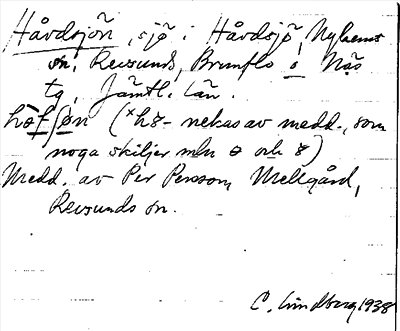 Håvdsjön, sjö i Håvdsjö, Nyhems
sn, Revsunds, Brunflo o Näs
tg, Jämtl. län.
(ˣhɞ- nekas av medd., som
noga skiljer mln ɵ och ɞ)
Medd. av Per Persson, Mellgård,
Revsunds sn.
C. Lindberg 1938